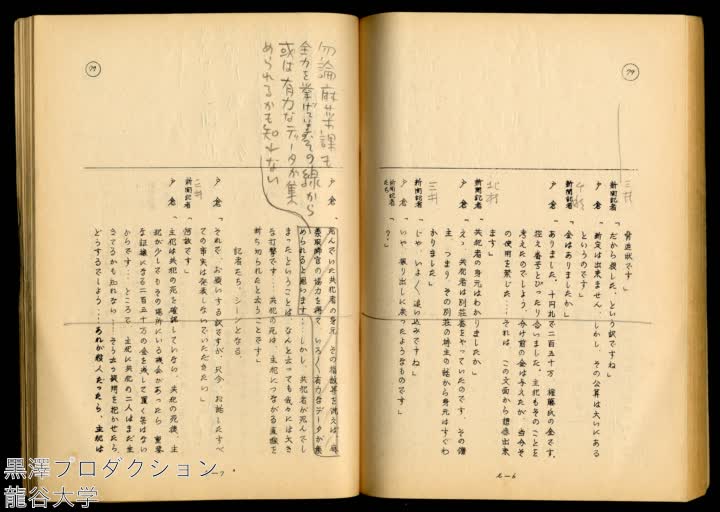 79
三井
脅迫状です」
新聞記者「だから殺した、という訳ですね」
戸倉「断定は出来ません、しかし、その公算は大いにある
というのです」
新聞記者「金はありましたか」
戸倉「ありました、十円札で二百五十万 権藤氏の金です、
控え番号とぴったり合いました、主犯もそのことを
考えたのでしょう、分け前の金は与えたが、当分そ
の使用を禁じた…それは、この文面から想像出来
ます」
北村
新聞記者「共犯者の身元はわかりましたか」
戸倉「えゝ、共犯者は別荘番をやっていたのです、その借
主、つまり、その別荘の持主の話から身元はすぐわ
かりました」
三井
新聞記者「じゃ、いよ〱追い込みですね」
戸倉「いや、振り出しに戻ったようなものです」
新聞記者たち「？」
七—6
79
勿論麻薬課も
全力を挙げていますその線から
或は有力なデータが集
められるかも知れない
戸倉「死んでいた共犯者の身元、その指紋等を洗えば、麻
薬取締官の協力を得て、いろ〱有力なデータが集
められると思います…しかし、共犯者が死んでし
まったということは、なんと云っても我々には大き
な打撃です…共犯の死は、主犯につながる直線を
断ち切られたと云うことです」
記者たち、シーンとなる。
戸倉「それで、お願いする訳ですが、只今、お話したすべ
ての事実は発表しないでいたゞきたい」
新聞記者「何故です」
戸倉「主犯は共犯の死を確認していない、共犯の死後、主
犯が少しでもその場所にいる機会があったら、重要
な証拠になる二百五十万の金を残して置く筈はない
からです…ところで、主犯に共犯の二人はまだ生
きてるかも知れない…そう云う疑問を抱かせたら、
どうするでしょう…あれが殺人だったら、主犯は
—7
黒澤プロダクション
龍谷大学